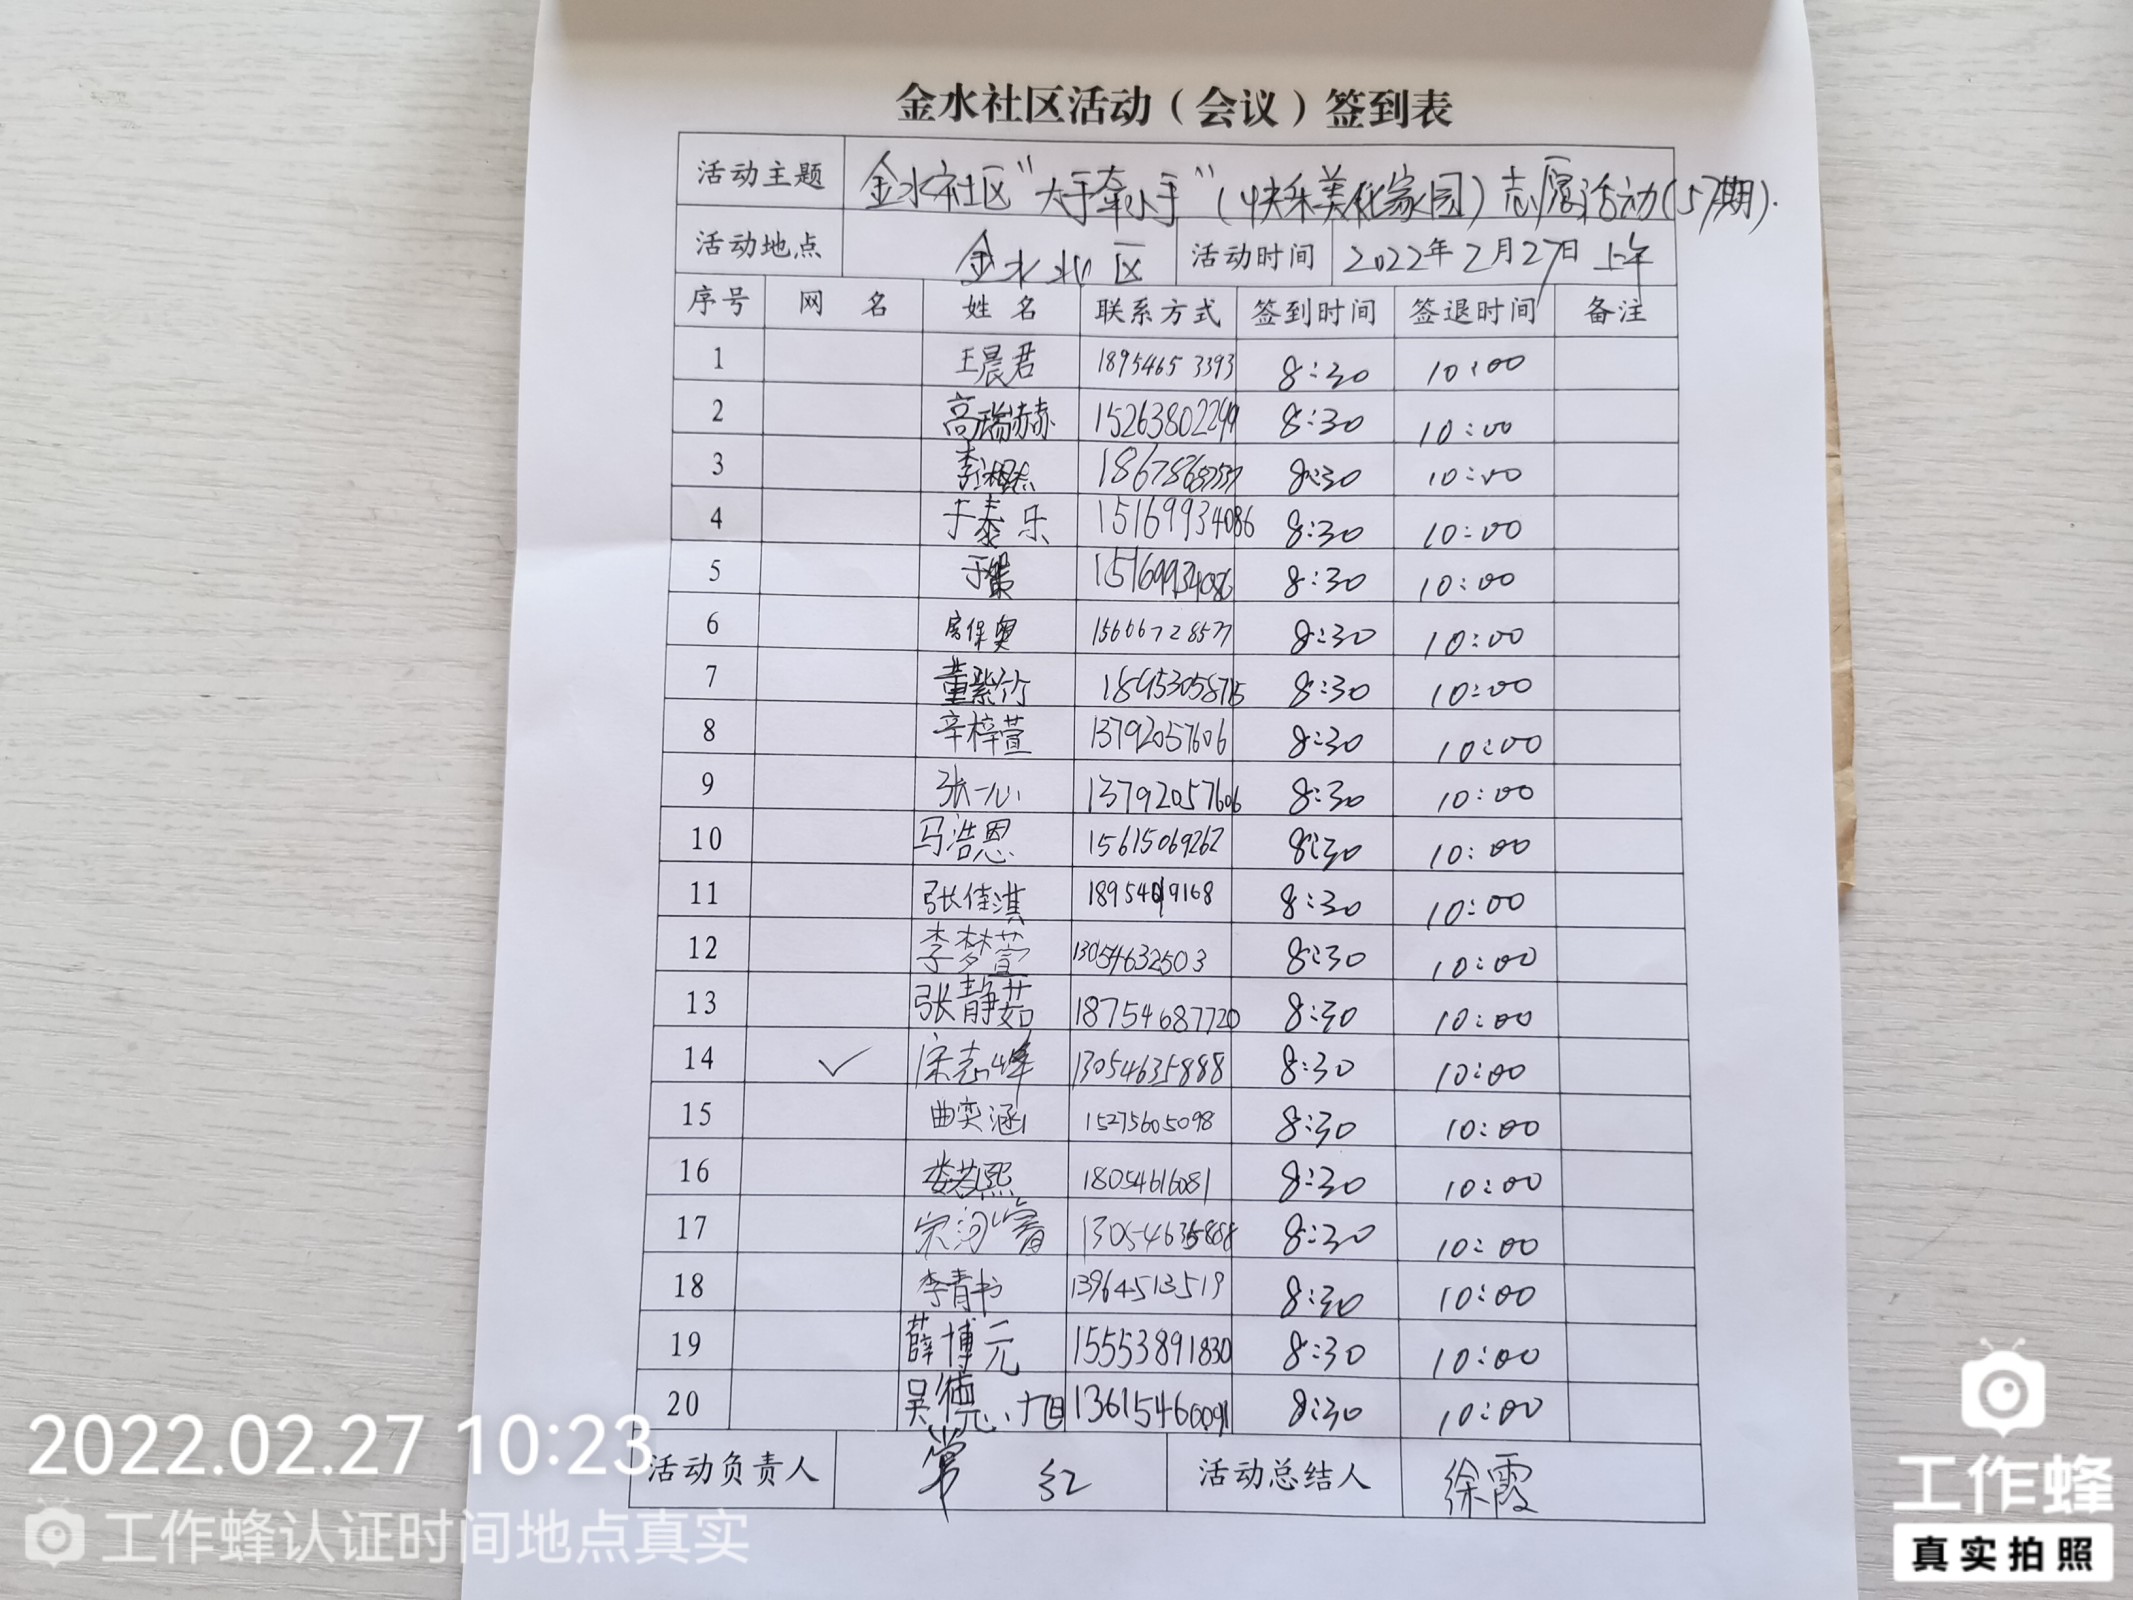 金水社区活动（会议）签到表
活动主题 金水社区“大手牵小手”（快乐美化家园）志愿活动（57期）.
活动地点 金水北区 活动时间 2022年2月27日 上午
序号 网 名 姓 名 联系方式 签到时间 签退时间 备注
1 王晨君 18954653393 8:30 10:00
2 高瑞赫 8:30 10:00
3 8:30 10:00
4 于泰乐 15169934086 8:30 10:00
5 15169934086 8:30 10:00
6 房保奥 15606728577 8:30 10:00
7 董紫竹 8:30 10:00
8 辛梓萱 13792057606 8:30 10:00
9 张一心 13792057606 8:30 10:00
10 马浩恩 15615069262 8:30 10:00
11 张佳淇 8:30 10:00
12 李梦萱 13054632503 8:30 10:00
13 张静茹 18754687720 8:30 10:00
14 ✓ 宋志峰 13054635888 8:30 10:00
15 曲奕涵 15275605098 8:30 10:00
16 娄若熙 18054616081 8:30 10:00
17 13054635888 8:30 10:00
18 李青书 13964513519 8:30 10:00
19 薛博元 15553891830 8:30 10:00
20 13615460091 8:30 10:00
活动负责人 常红 活动总结人 徐霞
2022.02.27 10:23
工作蜂认证时间地点真实
工作蜂
真实拍照